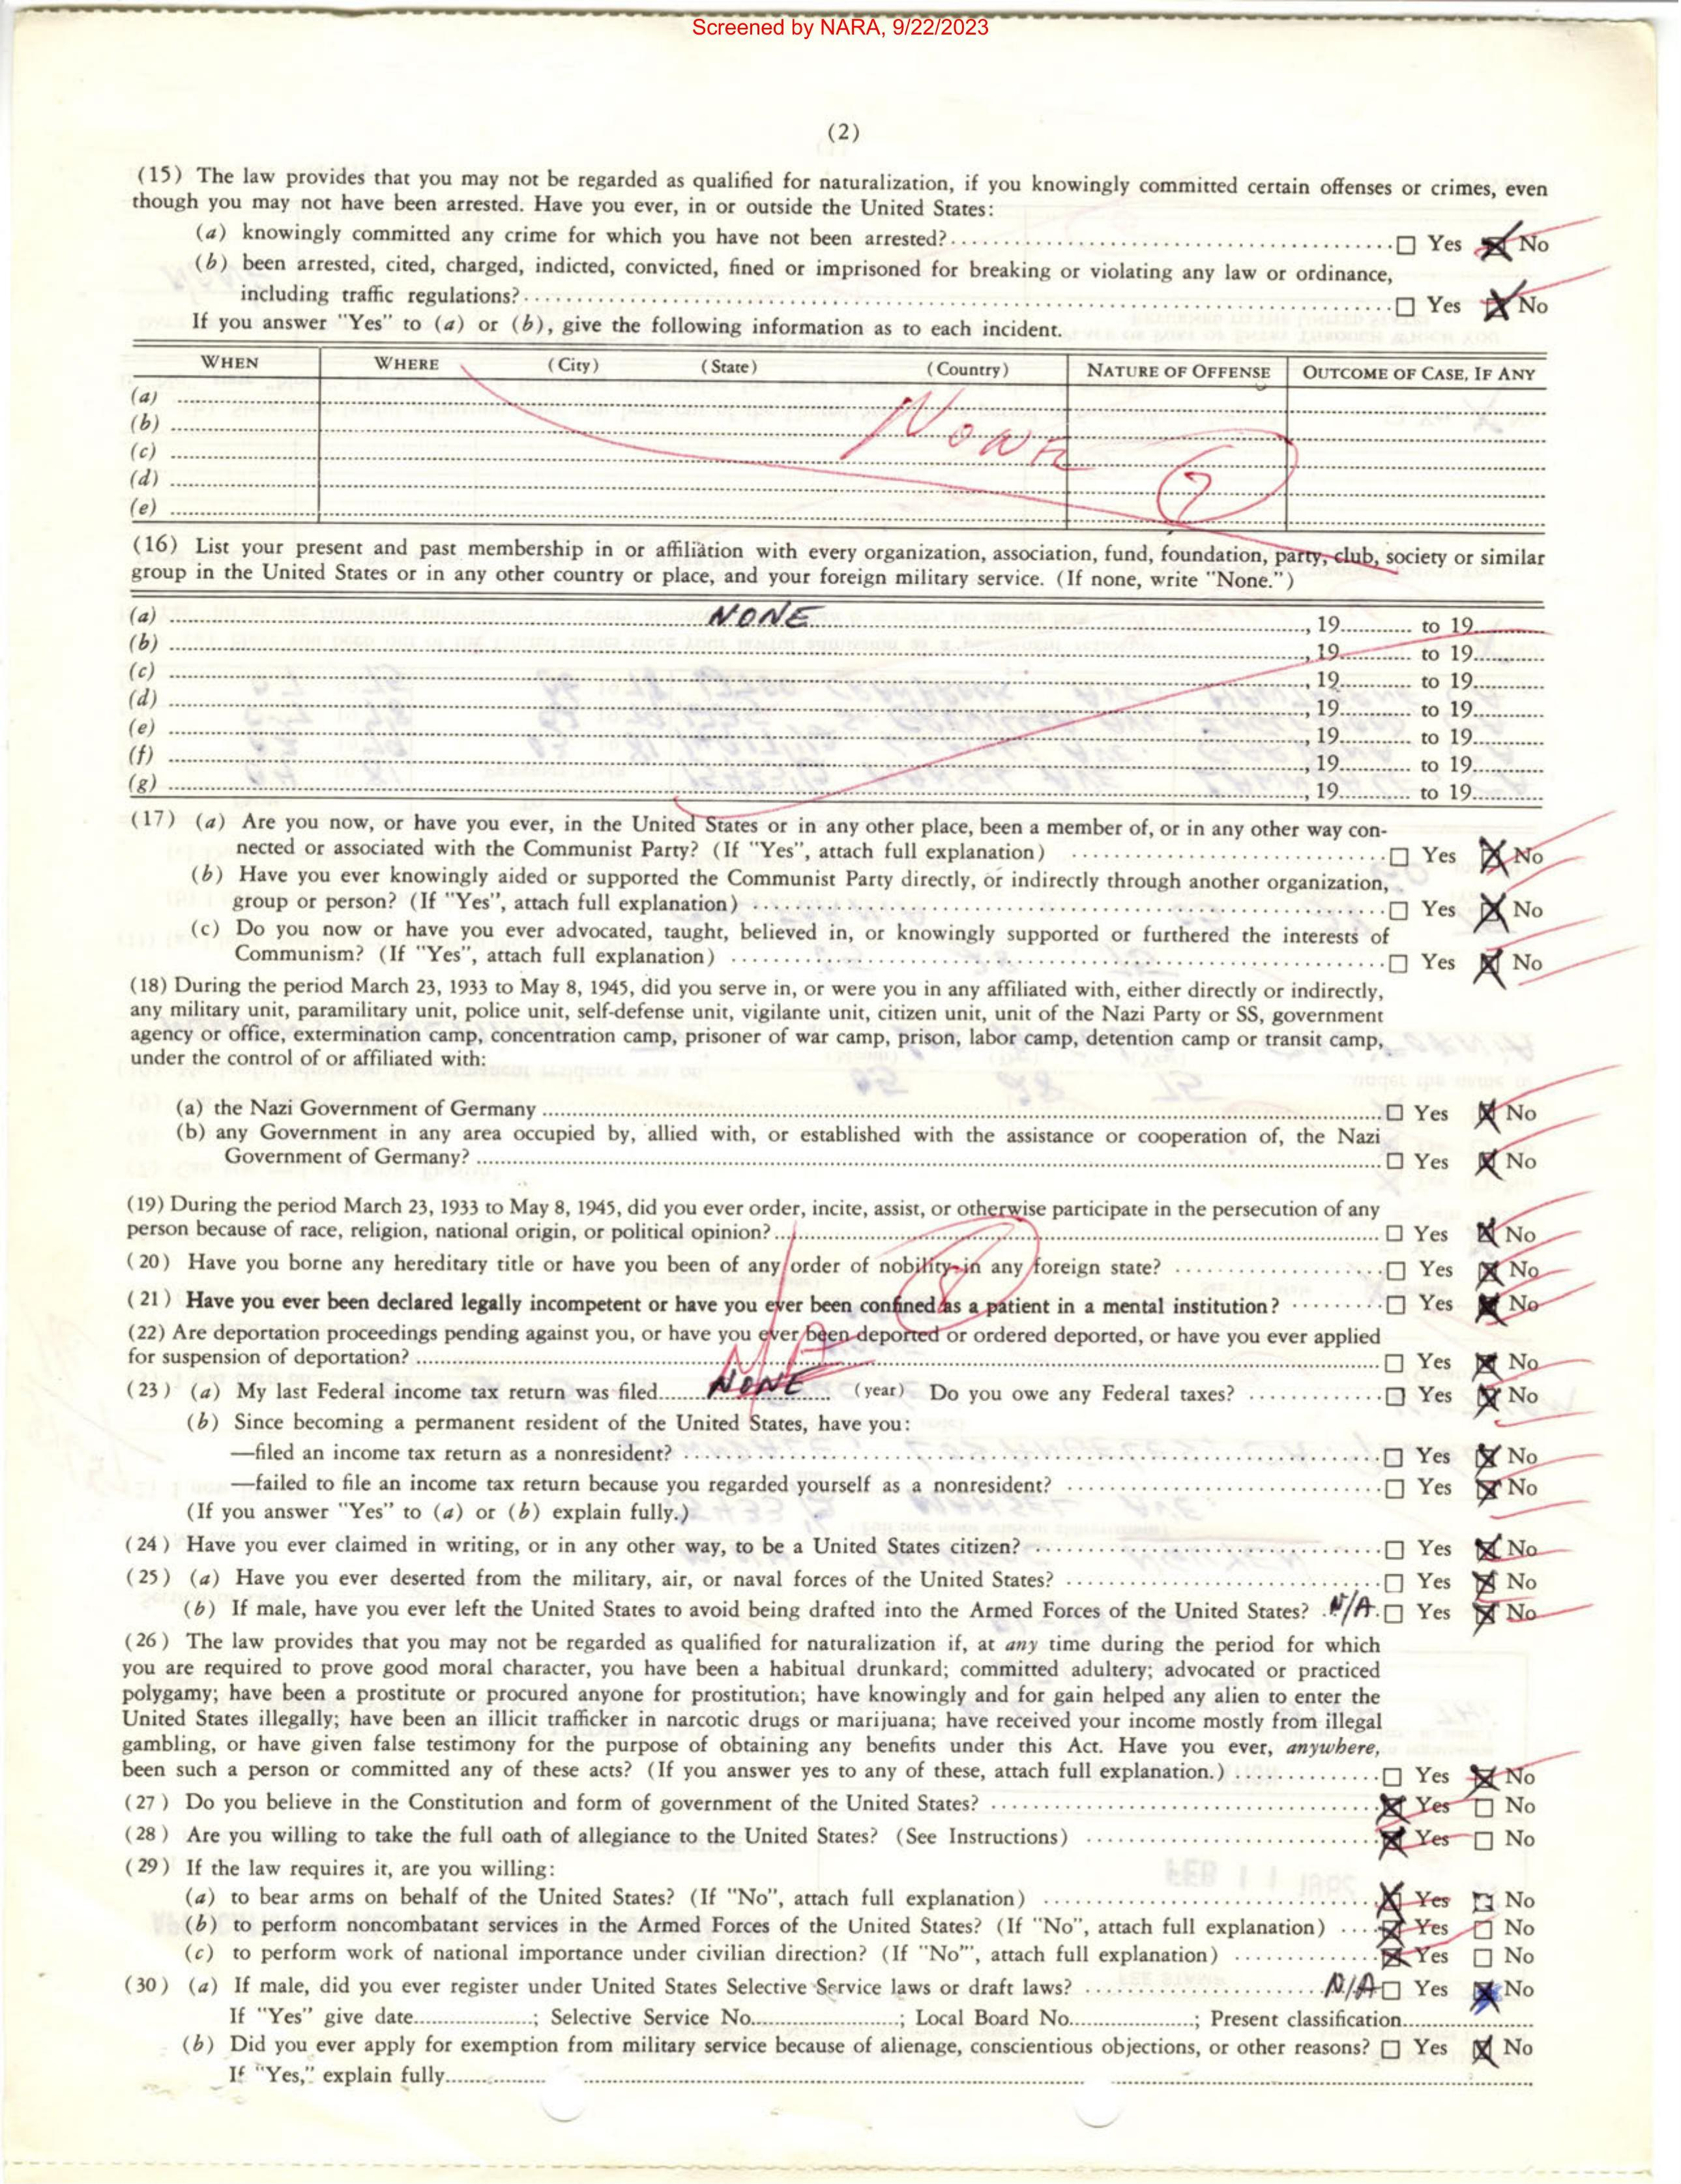 Screened by NARA, 9/22/2023
(2)
(15) The law provides that you may not be regarded as qualified for naturalization, if you knowingly committed certain offenses or crimes, even
though you may not have been arrested. Have you ever, in or outside the United States:
(a) knowingly committed any crime for which you have not been arrested? ☐ Yes ☒ No
(b) been arrested, cited, charged, indicted, convicted, fined or imprisoned for breaking or violating any law or ordinance,
including traffic regulations? ☐ Yes ☒ No
If you answer "Yes" to (a) or (b), give the following information as to each incident.
WHEN WHERE (City) (State) (Country) NATURE OF OFFENSE OUTCOME OF CASE, IF ANY
(a)
(b) None
(c)
(d) 7
(e)
(16) List your present and past membership in or affiliation with every organization, association, fund, foundation, party, club, society or similar
group in the United States or in any other country or place, and your foreign military service. (If none, write "None.")
(a) NONE , 19 to 19
(b) , 19 to 19
(c) , 19 to 19
(d) , 19 to 19
(e) , 19 to 19
(f) , 19 to 19
(g) , 19 to 19
(17) (a) Are you now, or have you ever, in the United States or in any other place, been a member of, or in any other way con-
nected or associated with the Communist Party? (If "Yes", attach full explanation) ☐ Yes ☒ No
(b) Have you ever knowingly aided or supported the Communist Party directly, or indirectly through another organization,
group or person? (If "Yes", attach full explanation) ☐ Yes ☒ No
(c) Do you now or have you ever advocated, taught, believed in, or knowingly supported or furthered the interests of
Communism? (If "Yes", attach full explanation) ☐ Yes ☒ No
(18) During the period March 23, 1933 to May 8, 1945, did you serve in, or were you in any affiliated with, either directly or indirectly,
any military unit, paramilitary unit, police unit, self-defense unit, vigilante unit, citizen unit, unit of the Nazi Party or SS, government
agency or office, extermination camp, concentration camp, prisoner of war camp, prison, labor camp, detention camp or transit camp,
under the control of or affiliated with:
(a) the Nazi Government of Germany ☐ Yes ☒ No
(b) any Government in any area occupied by, allied with, or established with the assistance or cooperation of, the Nazi
Government of Germany? ☐ Yes ☒ No
(19) During the period March 23, 1933 to May 8, 1945, did you ever order, incite, assist, or otherwise participate in the persecution of any
person because of race, religion, national origin, or political opinion? ☐ Yes ☒ No
(20) Have you borne any hereditary title or have you been of any order of nobility in any foreign state? ☐ Yes ☒ No
8
(21) Have you ever been declared legally incompetent or have you ever been confined as a patient in a mental institution? ☐ Yes ☒ No
(22) Are deportation proceedings pending against you, or have you ever been deported or ordered deported, or have you ever applied
for suspension of deportation? ☐ Yes ☒ No
NA
(23) (a) My last Federal income tax return was filed NONE (year) Do you owe any Federal taxes? ☐ Yes ☒ No
(b) Since becoming a permanent resident of the United States, have you:
—filed an income tax return as a nonresident? ☐ Yes ☒ No
—failed to file an income tax return because you regarded yourself as a nonresident? ☐ Yes ☒ No
(If you answer "Yes" to (a) or (b) explain fully.)
(24) Have you ever claimed in writing, or in any other way, to be a United States citizen? ☐ Yes ☒ No
(25) (a) Have you ever deserted from the military, air, or naval forces of the United States? ☐ Yes ☒ No
(b) If male, have you ever left the United States to avoid being drafted into the Armed Forces of the United States? N/A ☐ Yes ☒ No
(26) The law provides that you may not be regarded as qualified for naturalization if, at any time during the period for which
you are required to prove good moral character, you have been a habitual drunkard; committed adultery; advocated or practiced
polygamy; have been a prostitute or procured anyone for prostitution; have knowingly and for gain helped any alien to enter the
United States illegally; have been an illicit trafficker in narcotic drugs or marijuana; have received your income mostly from illegal
gambling, or have given false testimony for the purpose of obtaining any benefits under this Act. Have you ever, anywhere,
been such a person or committed any of these acts? (If you answer yes to any of these, attach full explanation.) ☐ Yes ☒ No
(27) Do you believe in the Constitution and form of government of the United States? ☒ Yes ☐ No
(28) Are you willing to take the full oath of allegiance to the United States? (See Instructions) ☒ Yes ☐ No
(29) If the law requires it, are you willing:
(a) to bear arms on behalf of the United States? (If "No", attach full explanation) ☒ Yes ☐ No
(b) to perform noncombatant services in the Armed Forces of the United States? (If "No", attach full explanation) ☒ Yes ☐ No
(c) to perform work of national importance under civilian direction? (If "No"', attach full explanation) ☒ Yes ☐ No
(30) (a) If male, did you ever register under United States Selective Service laws or draft laws? N/A ☐ Yes ☒ No
If "Yes" give date ; Selective Service No. ; Local Board No. ; Present classification
(b) Did you ever apply for exemption from military service because of alienage, conscientious objections, or other reasons? ☐ Yes ☒ No
If "Yes," explain fully